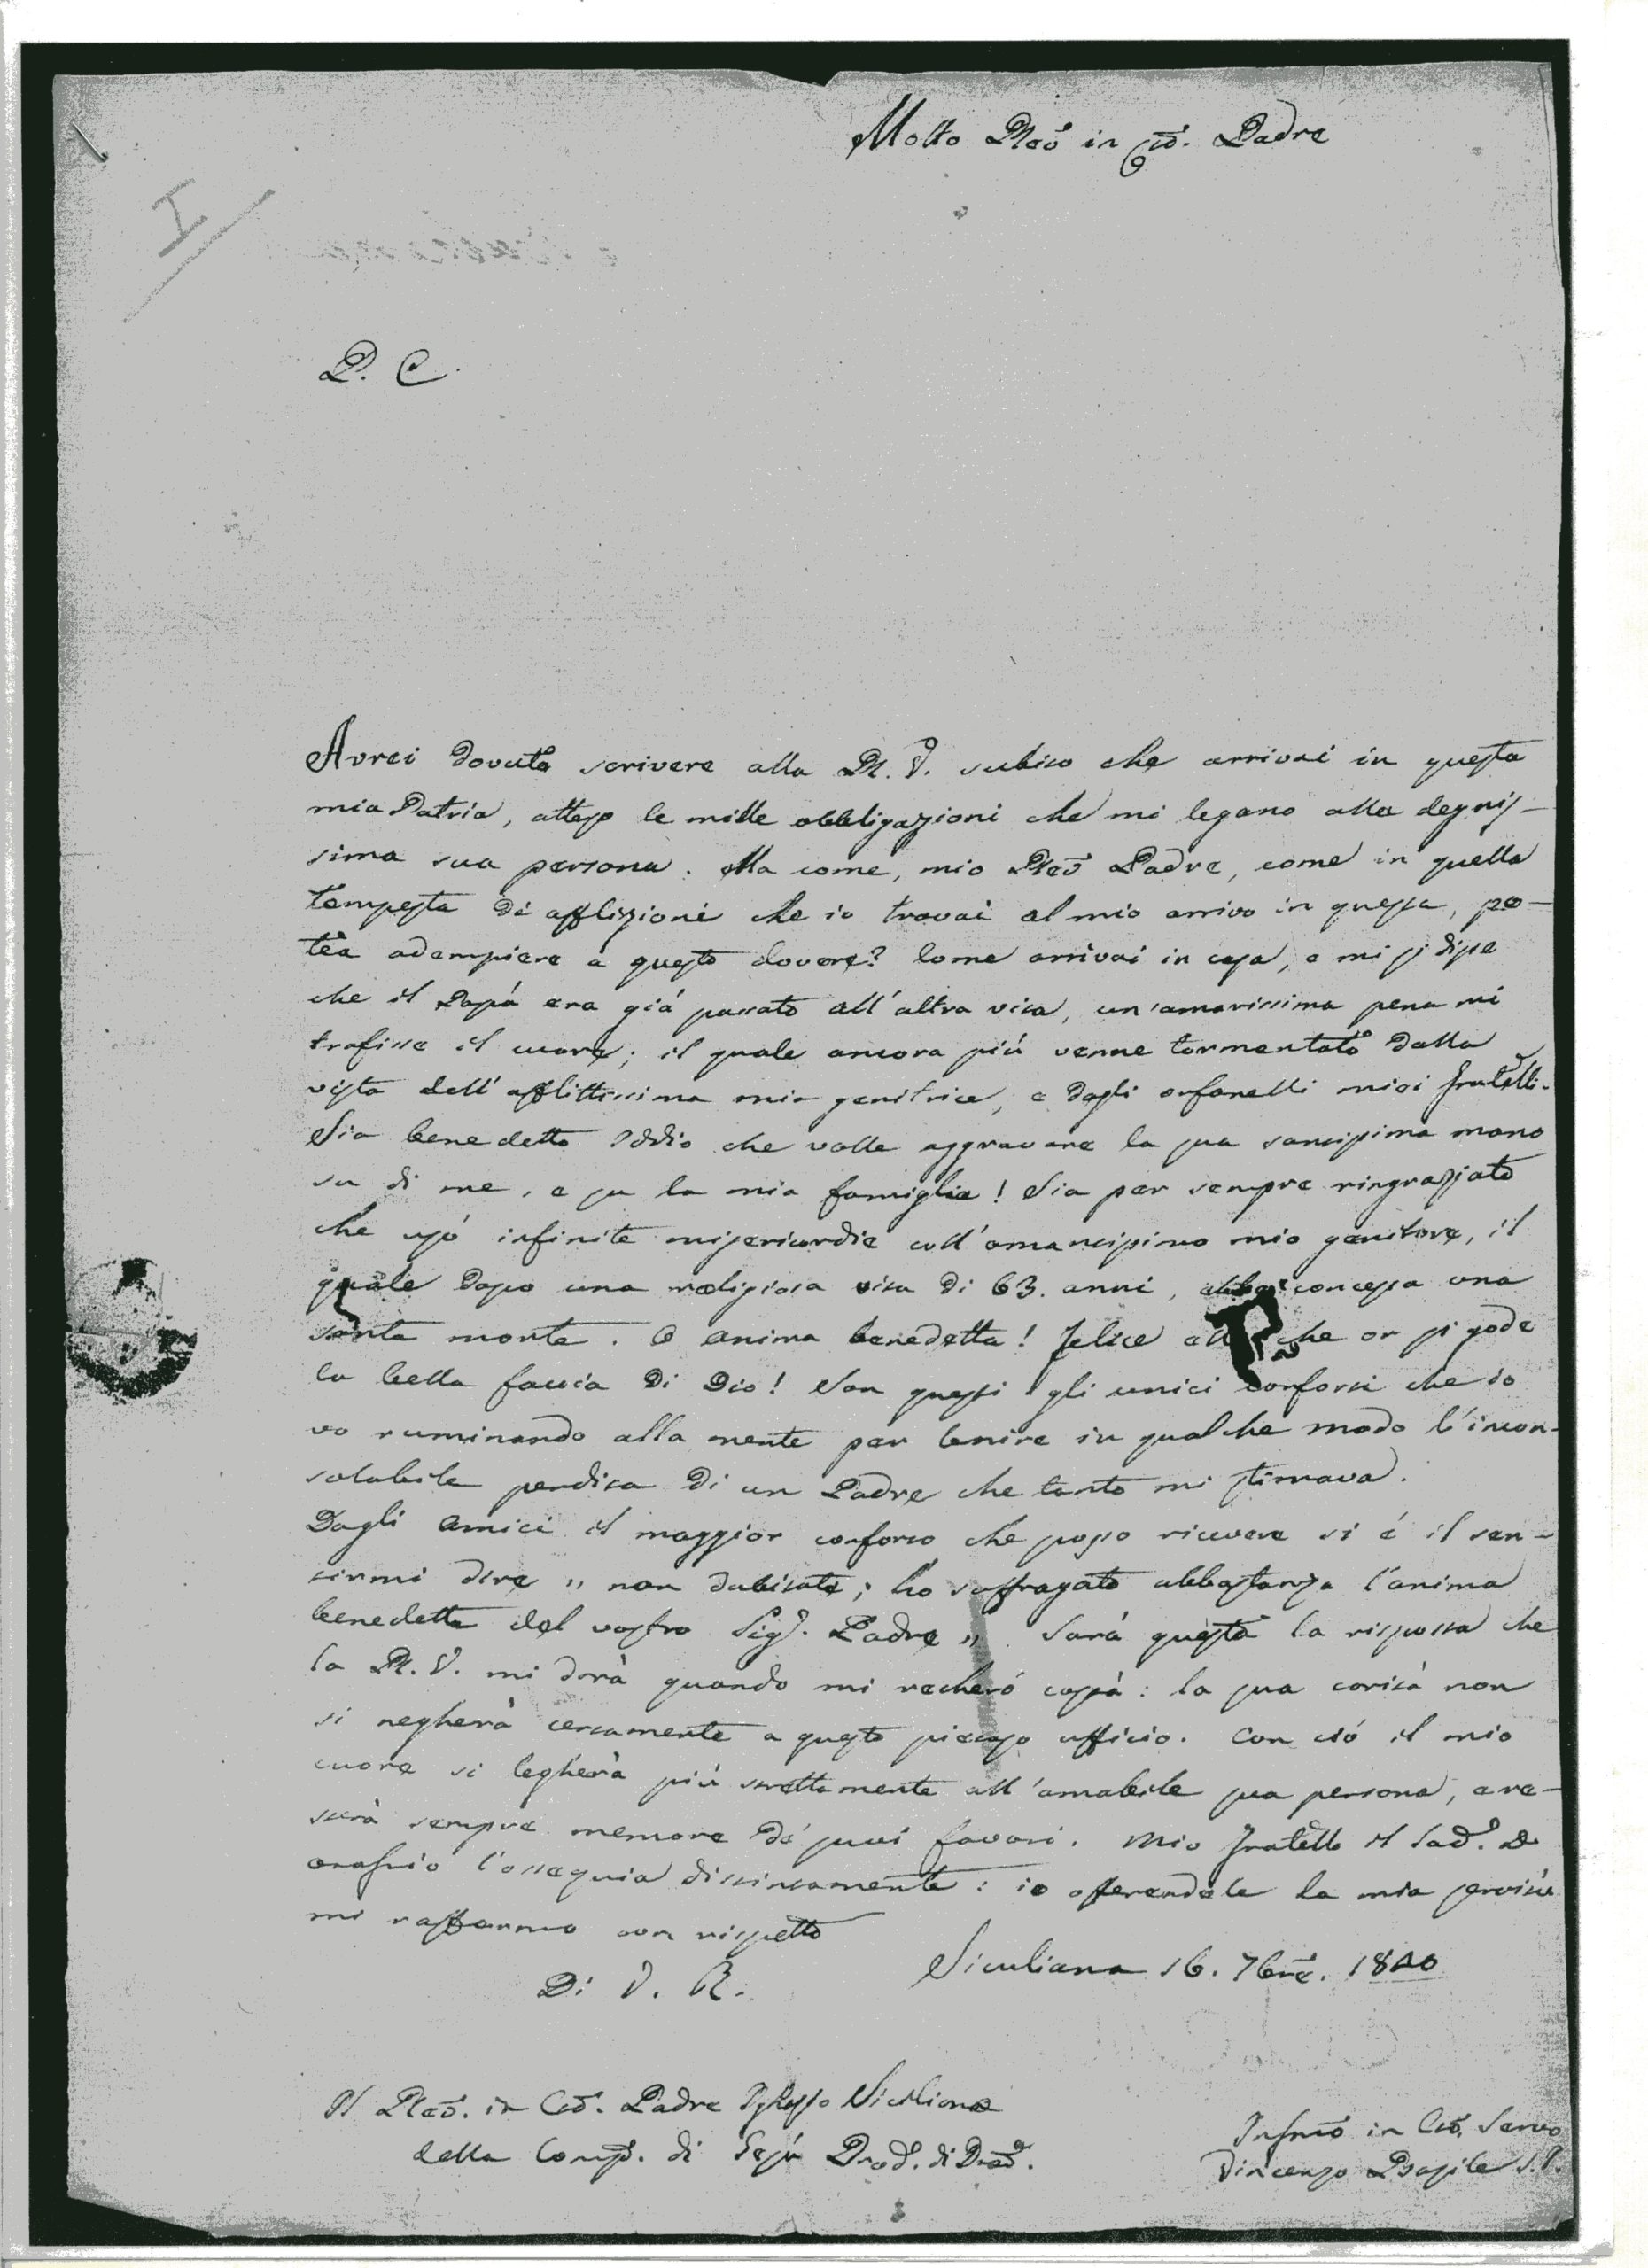 Molto Rdo in Cto. Padre
I
P. C.
Avrei dovuto scrivere alla R. V. subito che arrivai in questa
mia Patria, atteso le mille obbligazioni che mi legano alla degnis-
sima sua persona. Ma come, mio Rdo Padre, come in quella
tempesta di afflizioni che io trovai al mio arrivo in questa, po-
tea adempiere a questo dovere? Come arrivai in casa, e mi si disse
che il Papá era giá passato all'altra vita, un'amarissima pena mi
trafisse il cuore; il quale ancora piú venne tormentato dalla
vista dell'afflittissima mia genitrice, e dagli orfanelli miei fratelli.
Sia benedetto Iddio che volle aggravare la sua santissima mano
su di me, e su la mia famiglia! Sia per sempre ringraziato
che usó infinite misericordie coll'amantissimo mio genitore, il
quale dopo una religiosa vita di 63. anni, concessa una
santa morte. O anima benedetta! felice che or si gode
la bella faccia di Dio! Son questi gli unici conforti che io
vo ruminando alla mente per lenire in qualche modo l'incon-
solabile perdita di un Padre che tanto mi stimava.
Dagli amici il maggior conforto che posso ricevere si é il sen-
tirmi dire „ non dubitate; ho suffragato abbastanza l'anima
benedetta del vostro Sigr. Padre „. Sará questa la risposta che
la R. V. mi dará quando mi recheró costá: la sua caritá non
si negherá certamente a questo pietoso ufficio. Con ció il mio
cuore si legherá piú strettamente all'amabile sua persona, e re-
sterà sempre memore de' suoi favori. Mio fratello il Sad. D.
Onofrio l'ossequia distintamente: io offerendole la mia servitù
mi raffermo con rispetto
Di V. R.
Siculiana 16. 7bre. 1840
Al Rdo. in Cto. Padre Siciliano
della Comp. di Gesú
Infmo in Cto. Servo
Vincenzo Basile S.J.